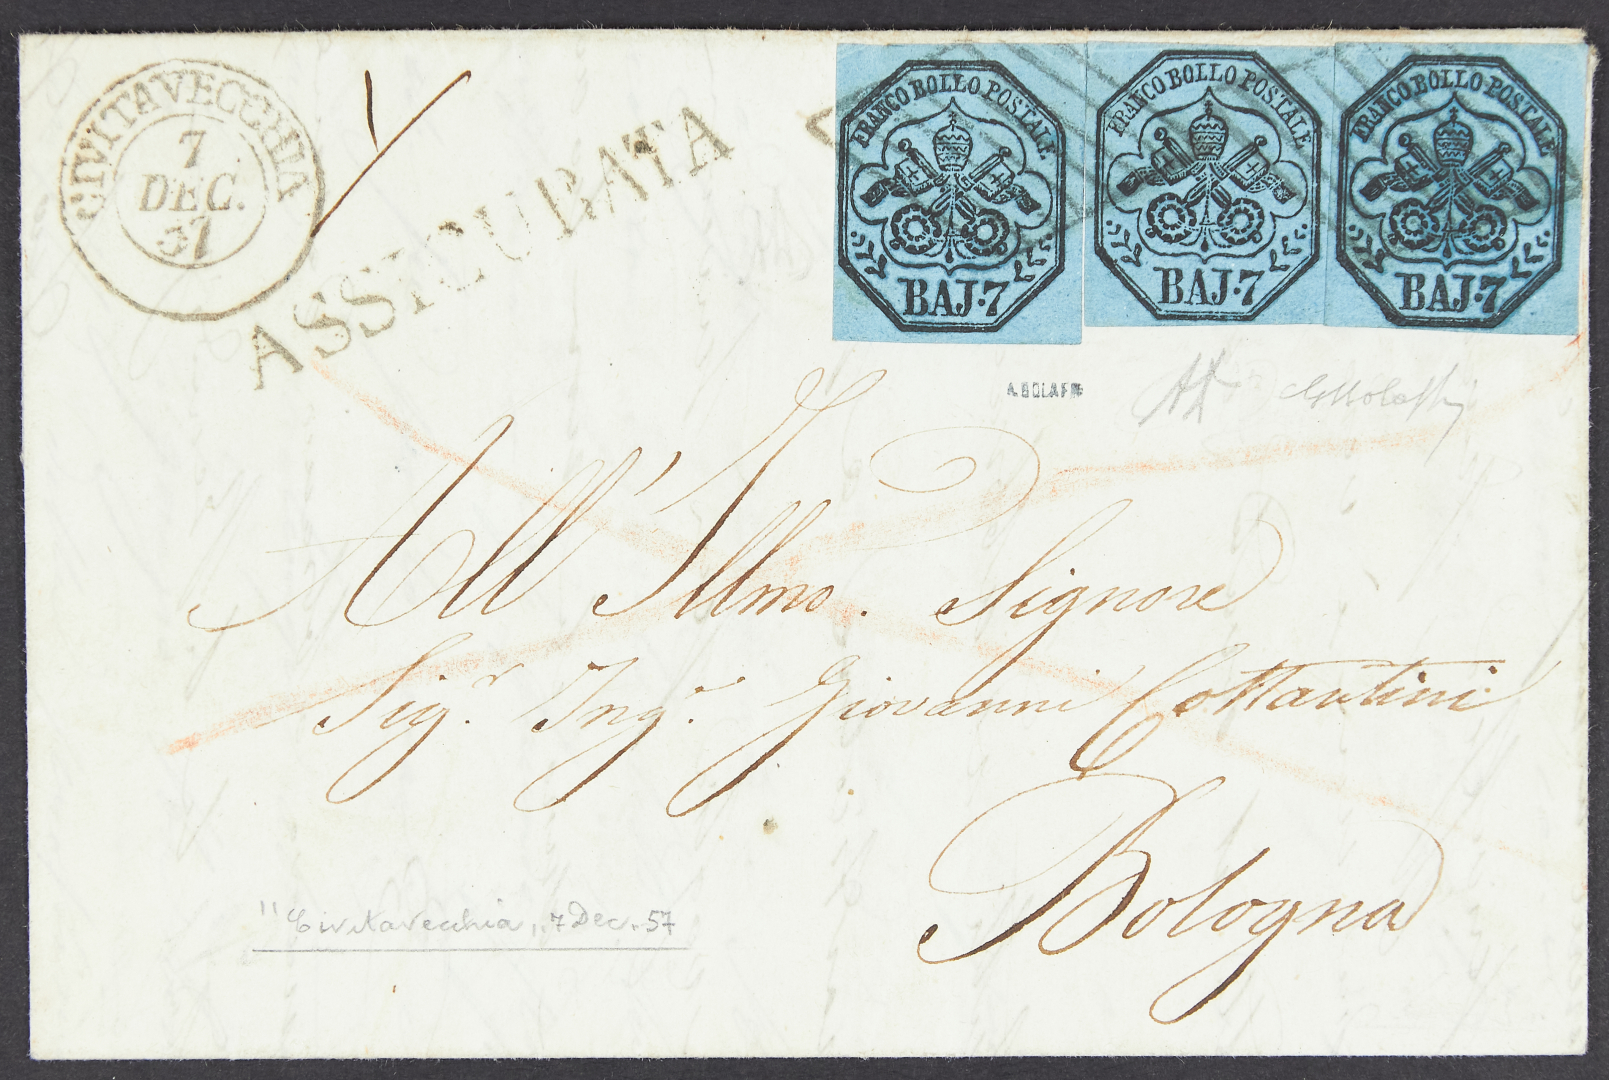 CIVITAVECCHIA
7
DEC.
57
ASSICURATA
FRANCO BOLLO POSTALE
BAJ·7
FRANCO BOLLO POSTALE
BAJ·7
FRANCO BOLLO POSTALE
BAJ·7
A.BOLAFFI
All' Illmo. Signore
Sig.r Ing.r Giovanni Cottantini
Bologna
"Civitavecchia, 7 Dec. 57